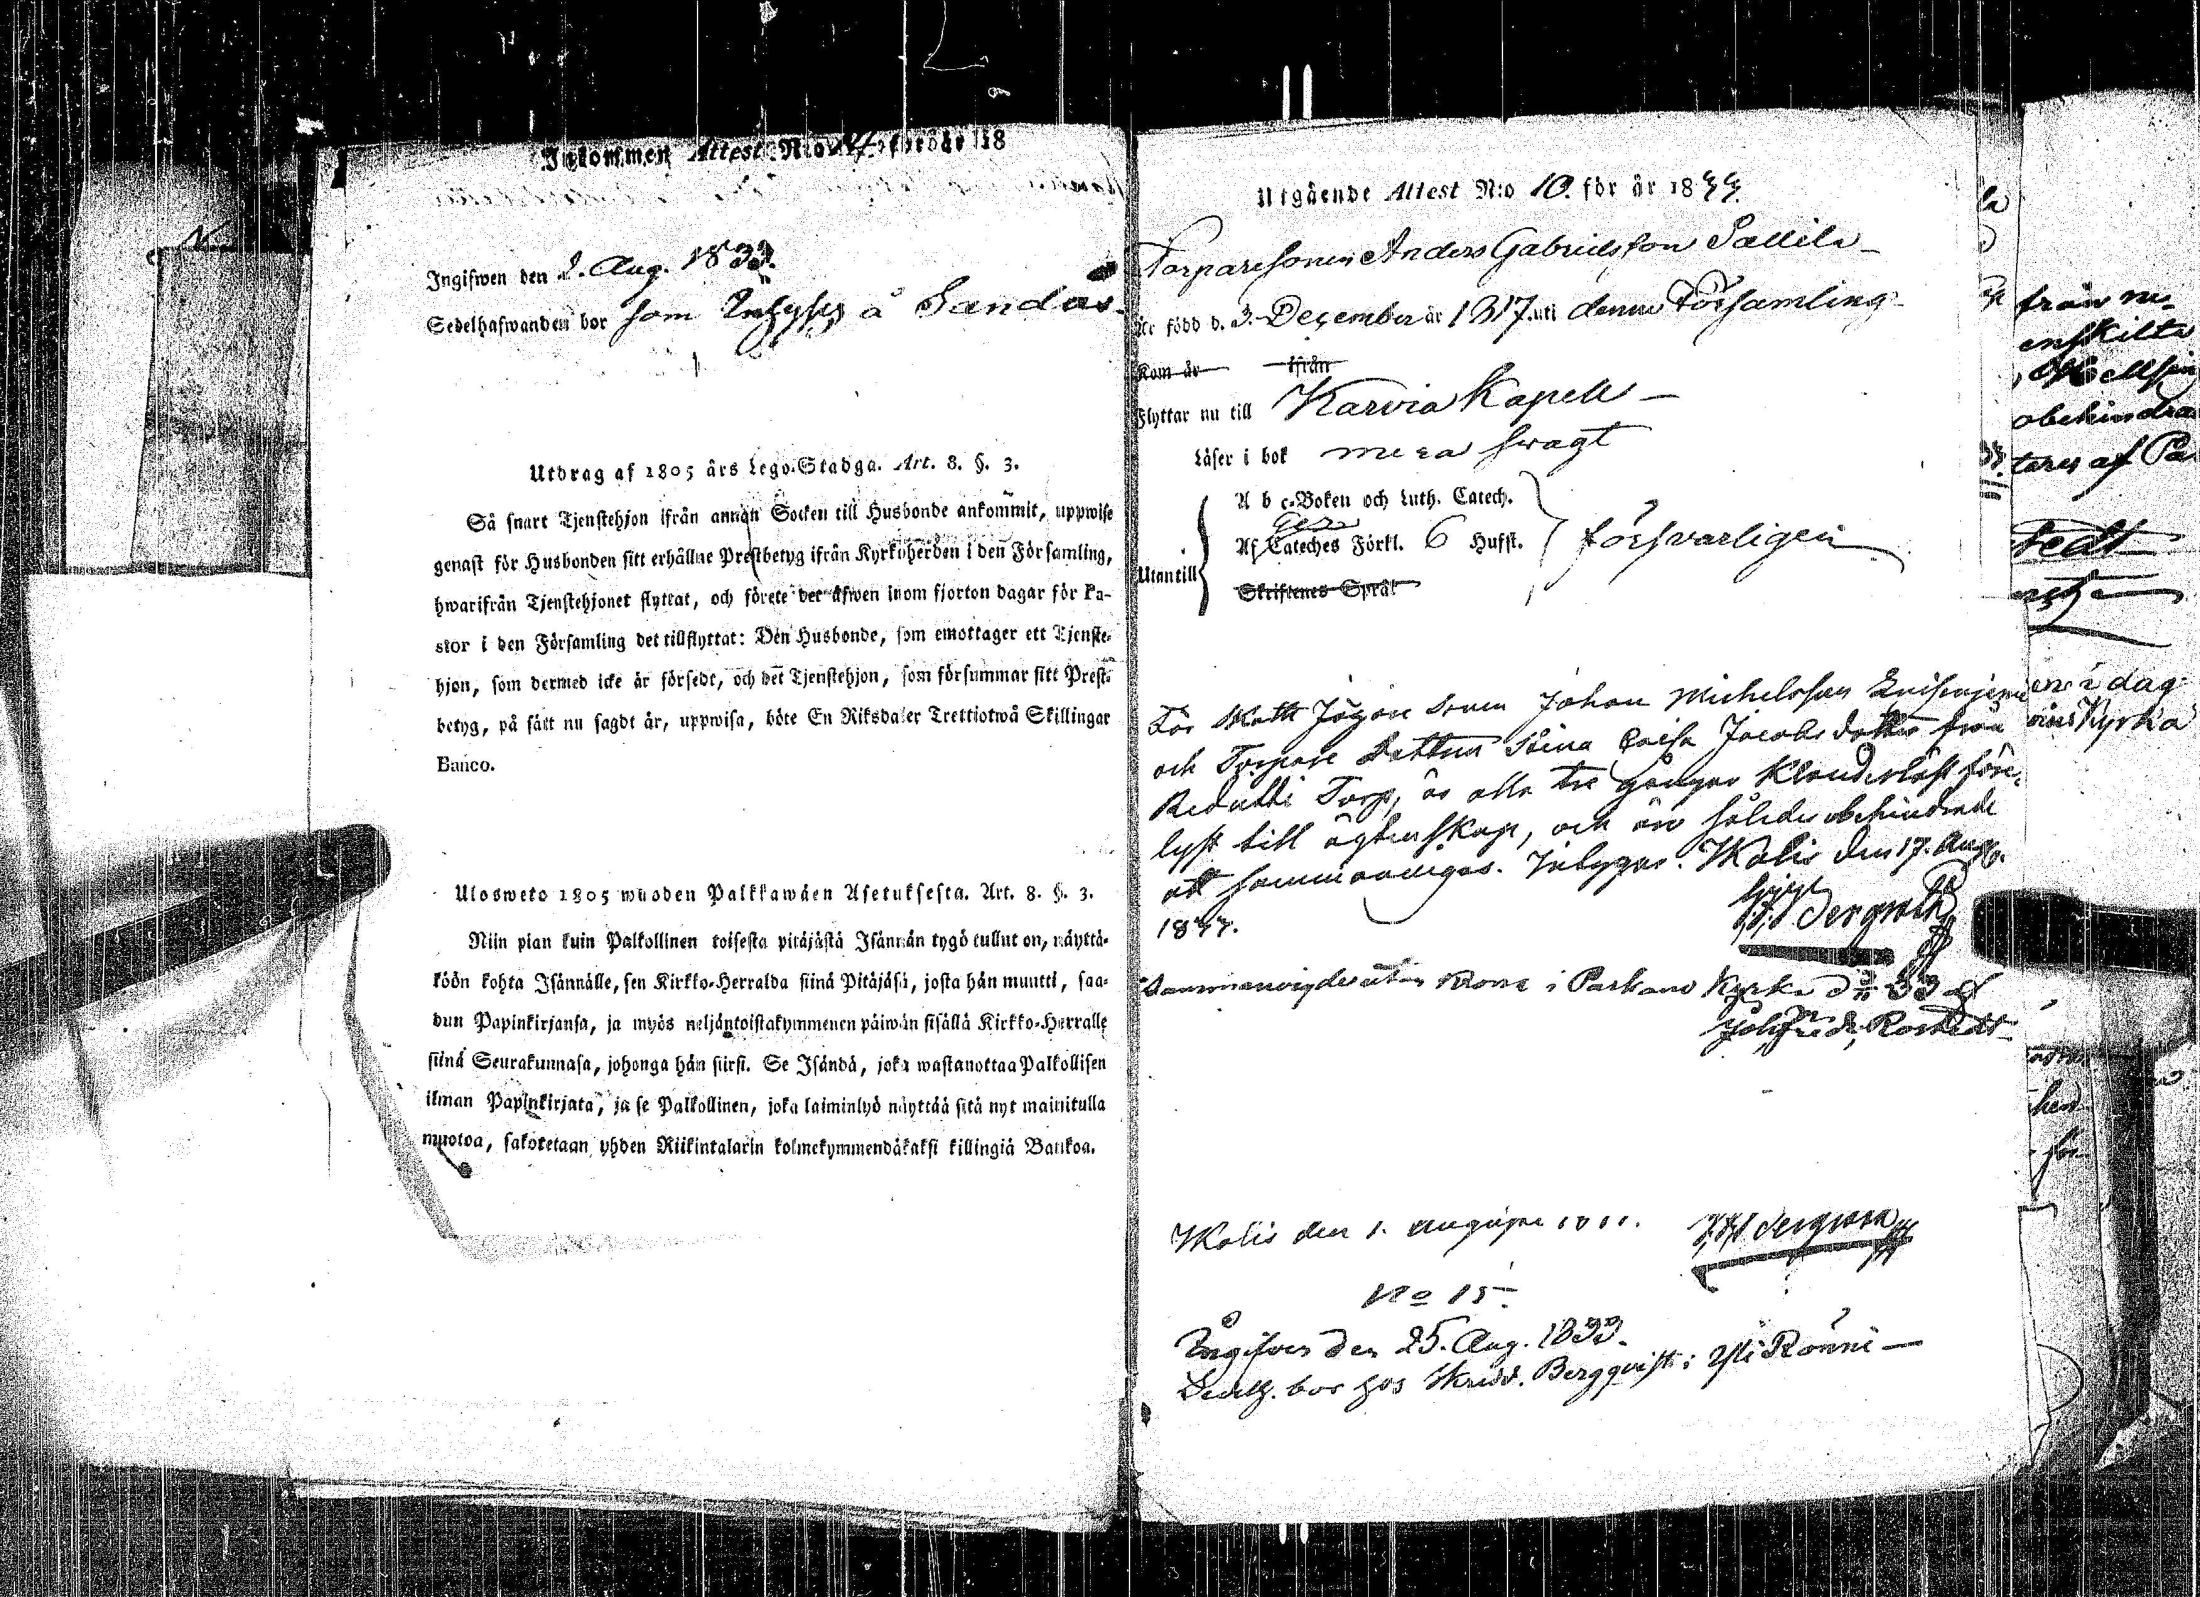 Inkommen Attest N:o 14. för år 18
Ingifwen den 2. Aug. 1833.
Sedelhafwanden bor som Inhyses å Sandås
Utdrag af 1805 års Lego-Stadga. Art. 8. §. 3.
Så snart Tjenstehjon ifrån annan Socken till Husbonde ankommit, uppwise
genast för Husbonden sitt erhållne Prestbetyg ifrån Kyrkoherden i den Församling,
hwarifrån Tjenstehjonet flyttat, och förete det äfwen inom fjorton dagar för Pa-
stor i den Församling det tillflyttat: Den Husbonde, som emottager ett Tjenste-
hjon, som dermed icke är försedt, och det Tjenstehjon, som försummar sitt Prest-
betyg, på sätt nu sagdt är, uppwisa, böte En Riksdaler Trettiotwå Skillingar
Banco.
Ulosweto 1805 wuoden Palkkawäen Asetuksesta. Art. 8. §. 3.
Niin pian kuin Palkollinen toisesta pitäjästä Isännän tygö tullut on, näyttä-
köön kohta Isännälle, sen Kirkko-Herralda siinä Pitäjäsä, josta hän muutti, saa-
dun Papinkirjansa, ja myös neljäntoistakymmenen päiwän sisällä Kirkko-Herralle
siinä Seurakunnasa, johonga hän siirsi. Se Isändä, joka wastanottaa Palkollisen
ilman Papinkirjata, ja se Palkollinen, joka laiminlyö näyttää sitä nyt mainitulla
muotoa, sakotetaan yhden Riikintalarin kolmekymmendäkaksi killingiä Bankoa.
Utgående Attest N:o 10. för år 1833.
Torparesonen Anders Gabrielsson Sallila
Är född d. 3. December år 1817. uti denna Församling
Kom år ifrån
Flyttar nu till Karvia Kapell
Läser i bok mera swagt
A b c-Boken och Luth. Catech.
Af Cateches Förkl. 6 Hufst. försvarligen
Utantill
Skriftenes Språk
För Johan Michelsson
och Torpare Dottren Stina Caisa Jacobs dotter från
Torp, är alla tre gånger Klanderlöst före-
lyst till ägtenskap, och äro således obehindrade
att sammanvigas. Intygar. Ikalis den 17. Aug.
1833.
Bergroth
Sammanvigde utan Krona i Parkano Kyrka d 33 af
Joh. Fredr. Rostedt
Ikalis den 1. Bergroth
No 15.
Ingifven den 25. Aug. 1833.
Sedelh. bor hos Skrädd. Bergqvist i Yli Rönni